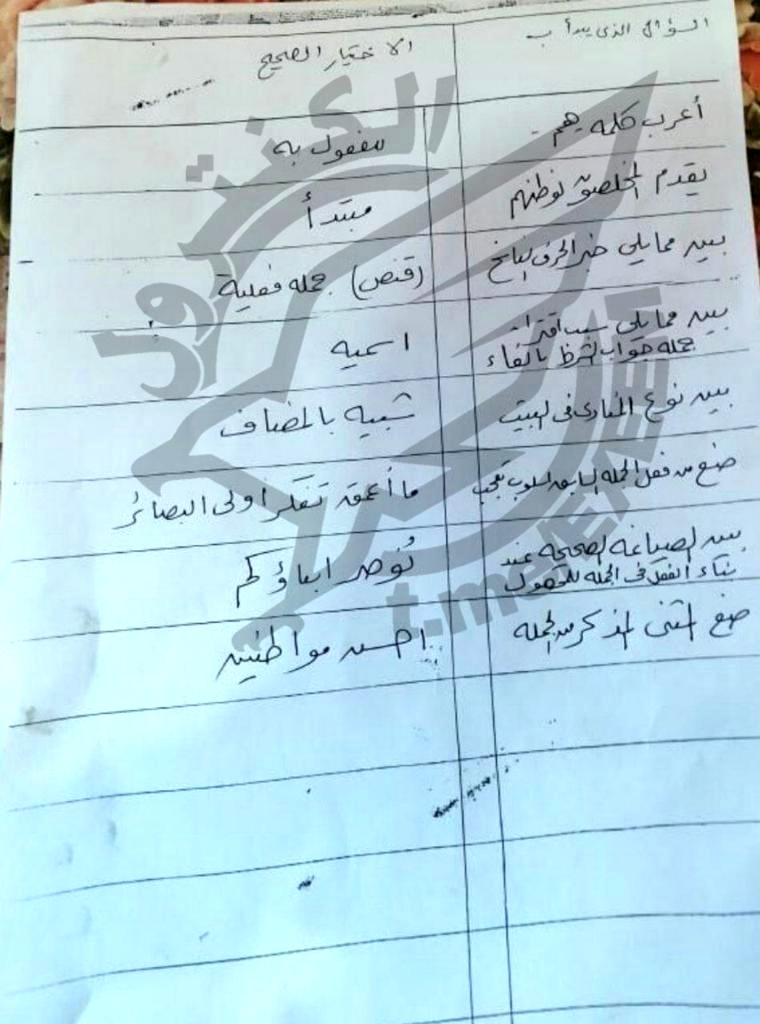 السؤال الذى يبدأ ب
الاختيار الصحيح
أعرب كلمة يهم
مفعول به
يقدم المخلصون لوطنهم
مبتدأ
بين مما يلي خبر الحرف الناسخ
(قنص) جملة فعلية
بين مما يلي سبب اقتران
جملة جواب الشرط بالفاء
اسميه
بين نوع المنادى فى البيت
شبيه بالمضاف
ضع من فعل الجملة السابقة اسلوب تعجب
ما أعمق تفكر أولى البصائر
بين الصياغة الصحيحة عند
بناء الفعل فى الجملة للمجهول
نُوصر ابعاؤكم
ضع المثنى المذكر من الجملة
احسن مواطنين
الكنترول
t.me/